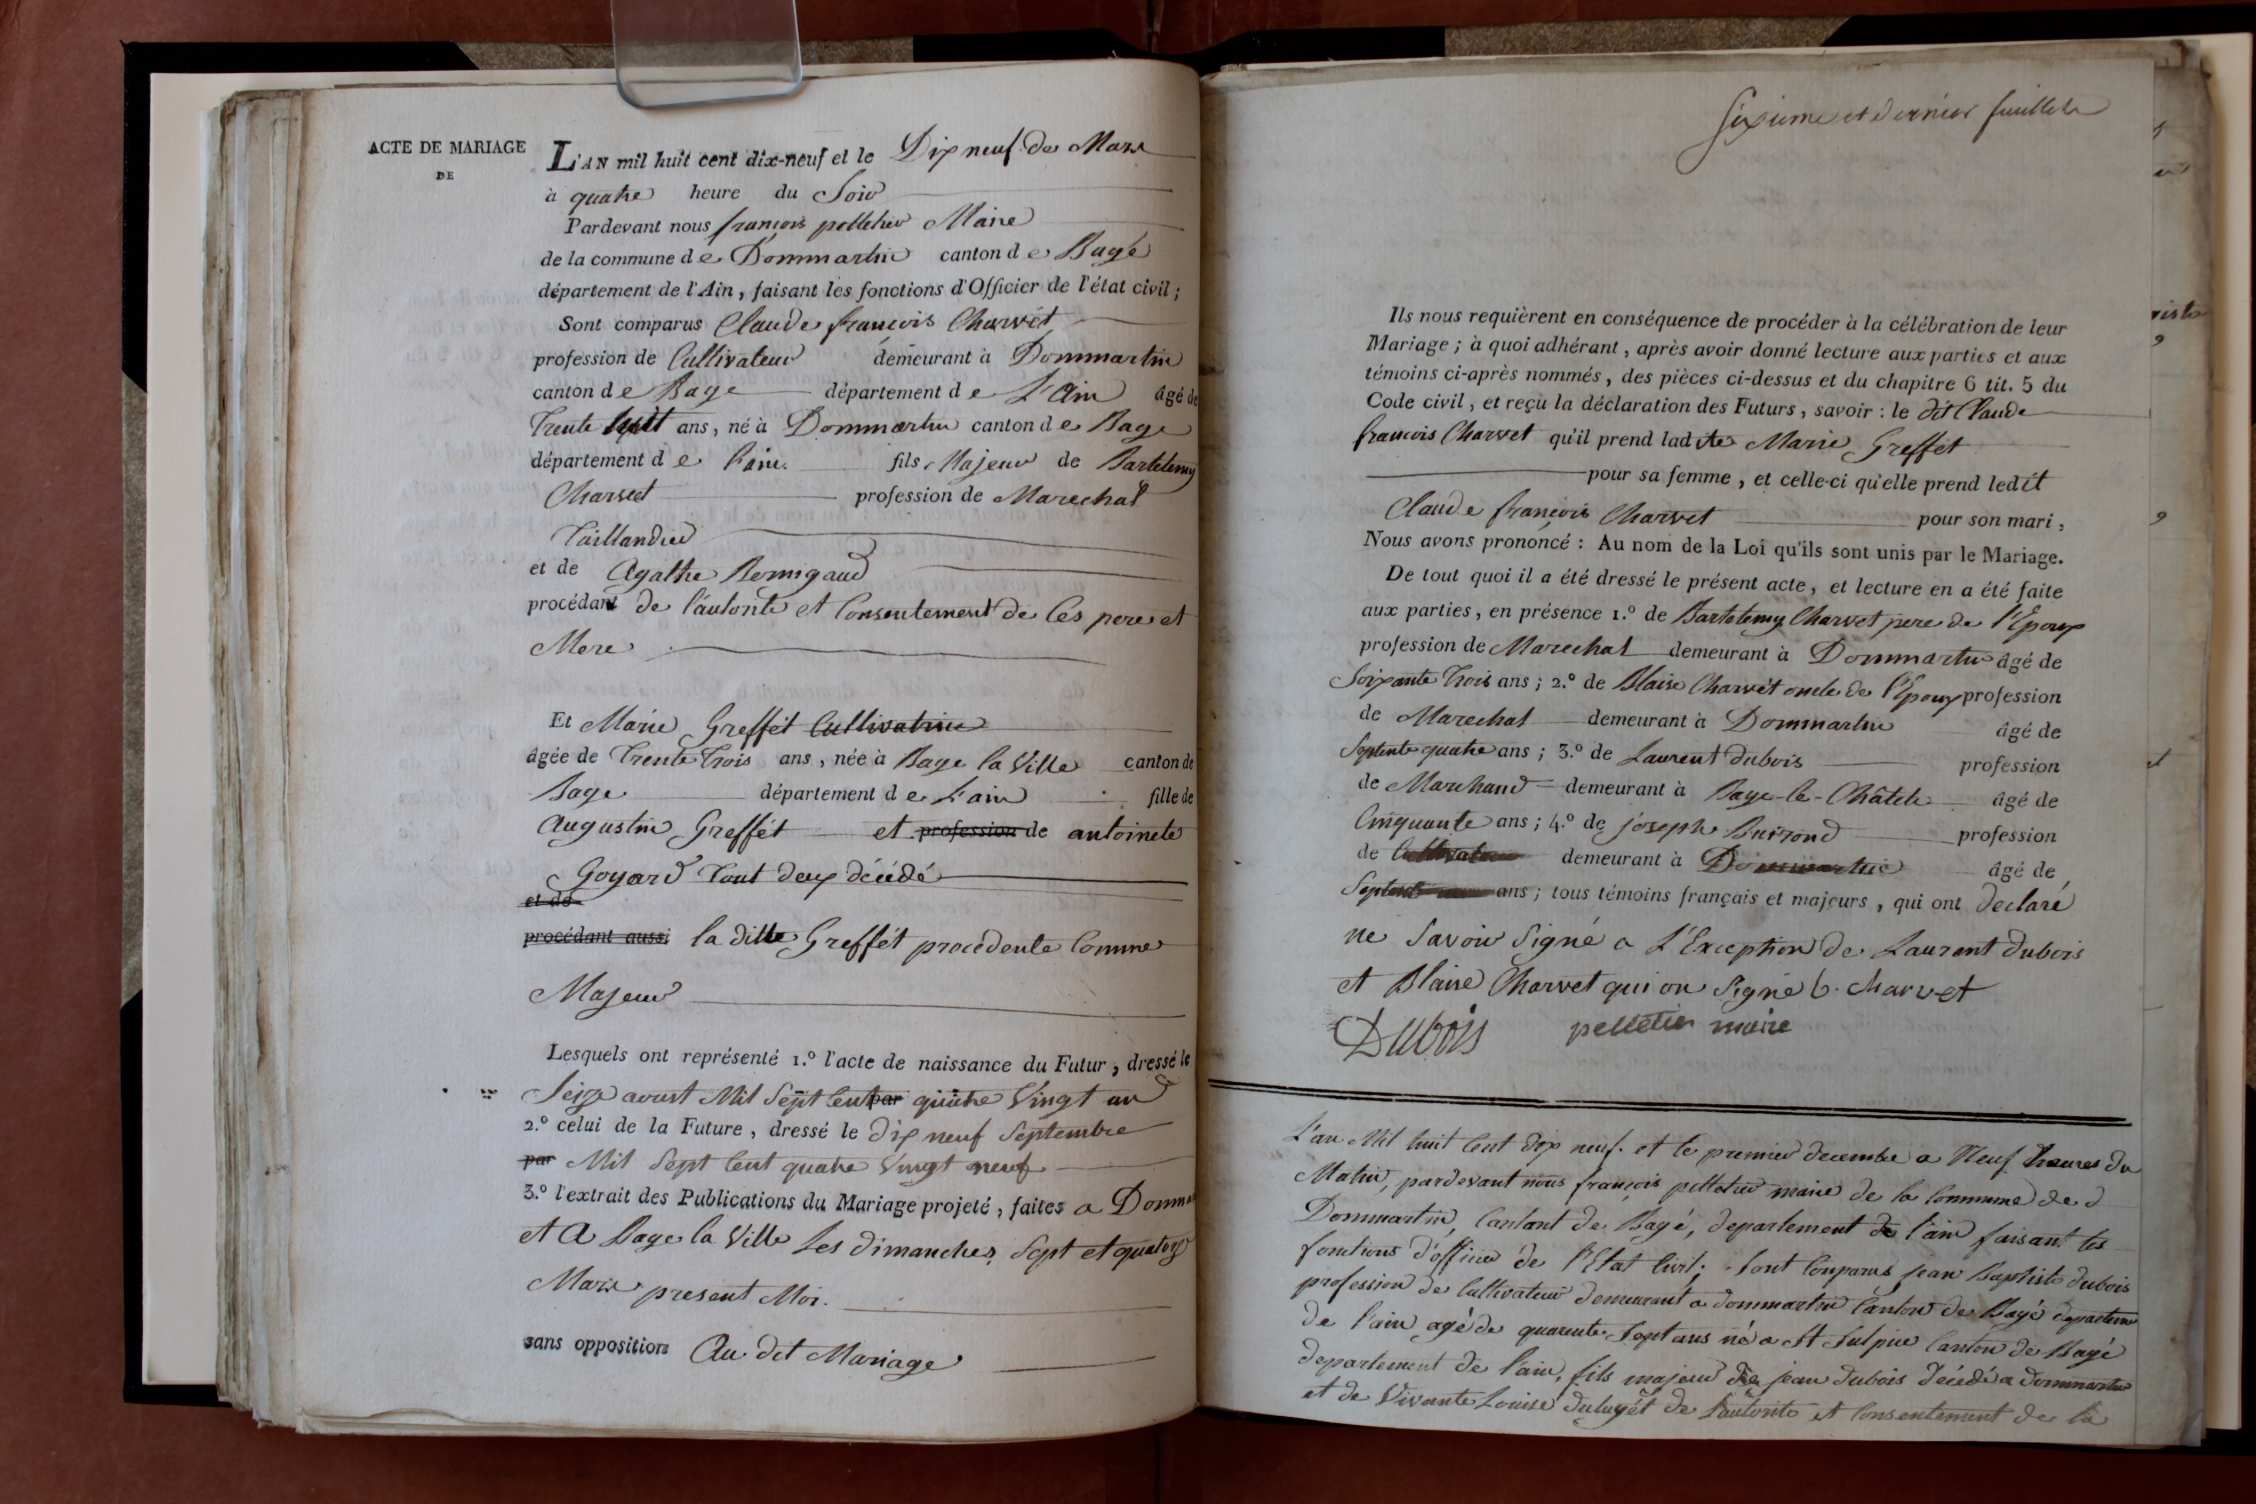 ACTE DE MARIAGE
DE
L'AN mil huit cent dix-neuf et le Dix neuf de Mars
à quatre heure du Soir
Pardevant nous françois pelletier Maire
de la commune de Dommartin canton de Bagé
département de l'Ain, faisant les fonctions d'Officier de l'état civil;
Sont comparus Claude françois Charvét
profession de Cultivateur demeurant à Dommartin
canton de Bage département de L'Ain âgé de
Trente sept ans, né à Dommartin canton de Bage
département de L'ain fils Majeur de Bartelemy
Charvet profession de Marechal
Taillandier
et de Agathe
procédant de l'autorité et Consentement de Ces pere et
Mere
Et Marie Greffét Cultivatrice
âgée de Trente Trois ans, née à Bage la Ville canton de
Bage département de L'ain fille de
Augustin Greffét et profession de antoinete
Goyard Tout deux décédé
et de
procédant aussi la ditte Greffét procedente Comme
Majeur
Lesquels ont représenté 1.º l'acte de naissance du Futur, dressé le
Seize aoust Mil Sept Cent par quatre Vingt un
2.º celui de la Future, dressé le dix neuf Septembre
par Mil Sept Cent quatre Vingt neuf
3.º l'extrait des Publications du Mariage projeté, faites a Dommar
et A Bage la Ville Les dimanches Sept et quatorze
Mars present Moi.
sans opposition Au dit Mariage
Sixieme et dernier feuillet
Ils nous requièrent en conséquence de procéder à la célébration de leur
Mariage; à quoi adhérant, après avoir donné lecture aux parties et aux
témoins ci-après nommés, des pièces ci-dessus et du chapitre 6 tit. 5 du
Code civil, et reçu la déclaration des Futurs, savoir: le dit Claude
francois Charvet qu'il prend ladite Marie Greffét
pour sa femme, et celle-ci qu'elle prend ledit
Claude françois Charvet pour son mari,
Nous avons prononcé: Au nom de la Loi qu'ils sont unis par le Mariage.
De tout quoi il a été dressé le présent acte, et lecture en a été faite
aux parties, en présence 1.º de Bartelemy Charvet pere de l'Epoux
profession de Marechal demeurant à Dommartin âgé de
Soixante Trois ans; 2.º de Blaise Charvét oncle de l'Epoux profession
de Marechal demeurant à Dommartin âgé de
Septente quatre ans; 3.º de Laurent dubois profession
de Marchand demeurant à Bage-le-Châtele âgé de
Cinquante ans; 4.º de joseph profession
de Cultivateur demeurant à Dommartin âgé de
Septente ans; tous témoins français et majeurs, qui ont declaré
ne Savoir Signé a L'Exception de Laurent dubois
et Blaise Charvet qui on Signé b. charvet
DUbois pelletier maire
L'an Mil huit Cent dix neuf. et le premier decembre a Neuf heures du
Matin, pardevant nous françois pelletier maire de la Commune de d
Dommartin, Cantont de Bagé, departement de l'ain faisant les
fonctions d'officier de l'Etat Civil; Sont Comparus jean Baptiste dubois
profession de Cultivateur demeurant a dommartin Canton de Bagé departem
de l'ain agé de quarente Sept ans né a St Sulpice Canton de Bagé
departement de l'ain, fils majeur de jean dubois décédé a dommartin
et de Vivante Louise de l'autorité et Consentement de la